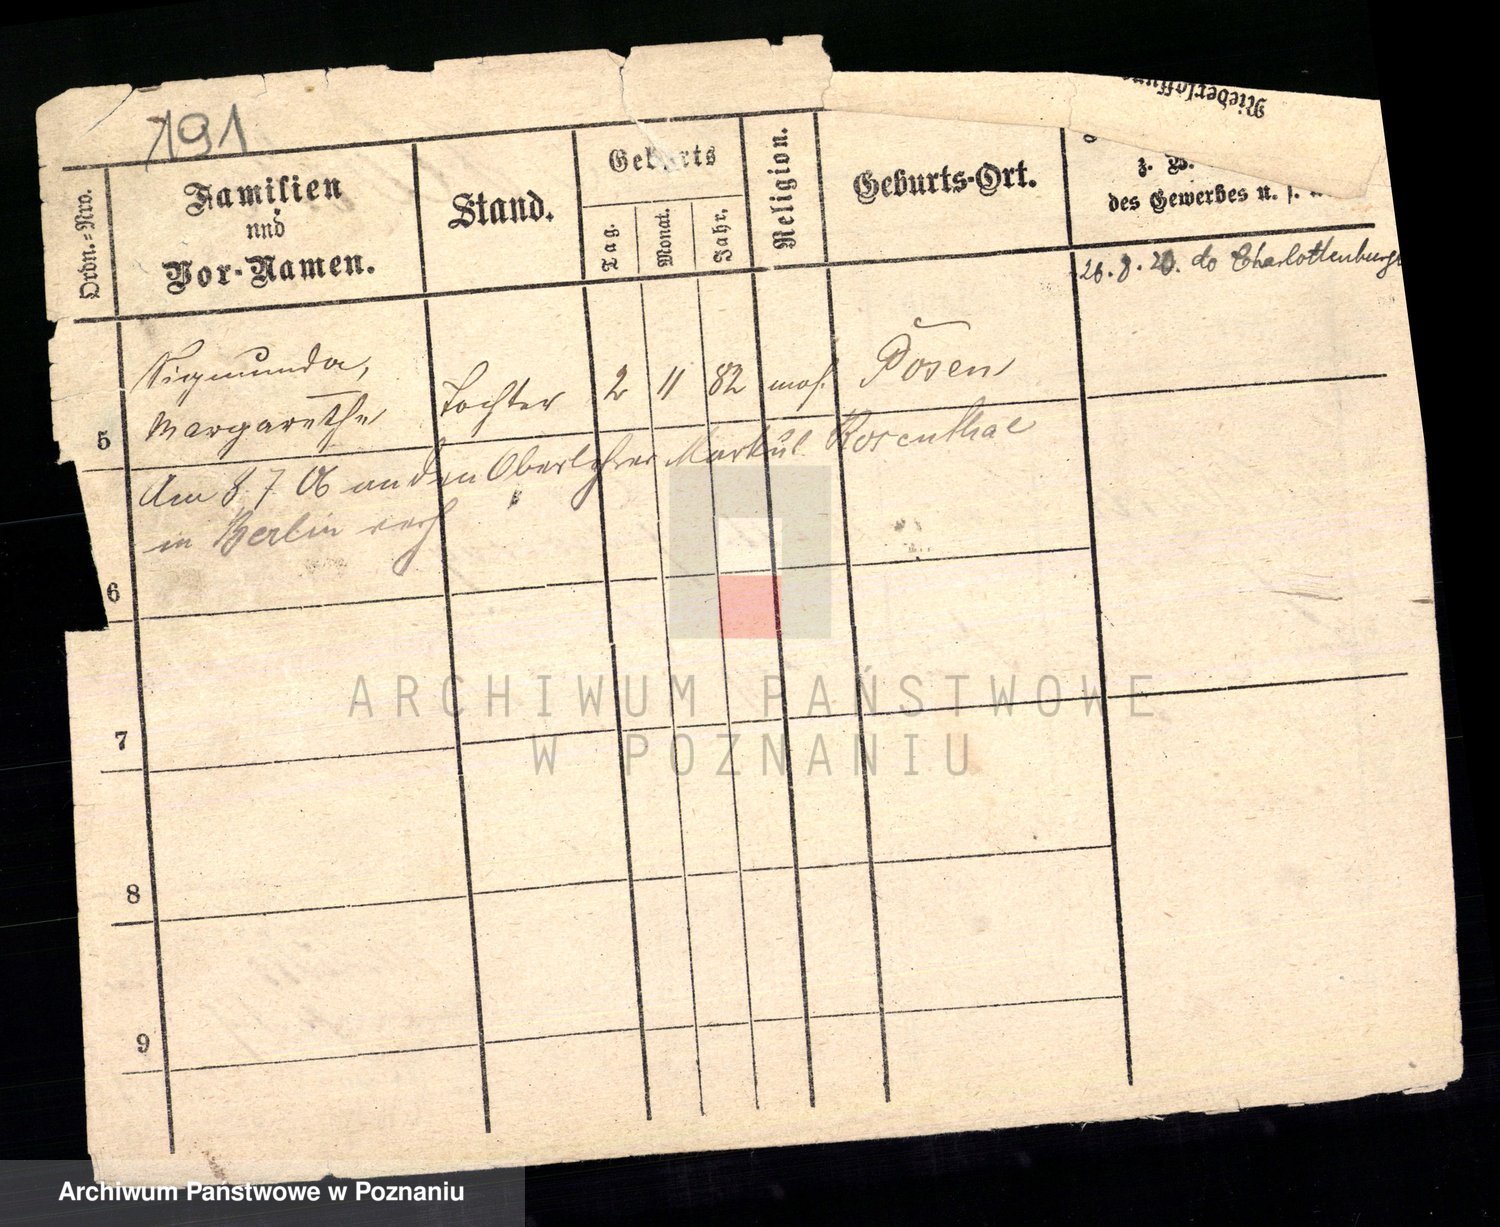 191
Niederlassung
Ordn.-Nro.
Familien
und
Vor-Namen.
Stand.
Geburts
Tag.
Monat.
Jahr.
Religion.
Geburts-Ort.
z. B.
des Gewerbes u. s. w.
26.8.20. do Charlottenburg
5
Sigmunda,
Margarethe
Tochter
2
11
82
mos.
Posen
6
Am 8 7 06 an den Oberlehrer Markus Rosenthal
in Berlin verh
7
8
9
ARCHIWUM PAŃSTWOWE
W POZNANIU
Archiwum Państwowe w Poznaniu